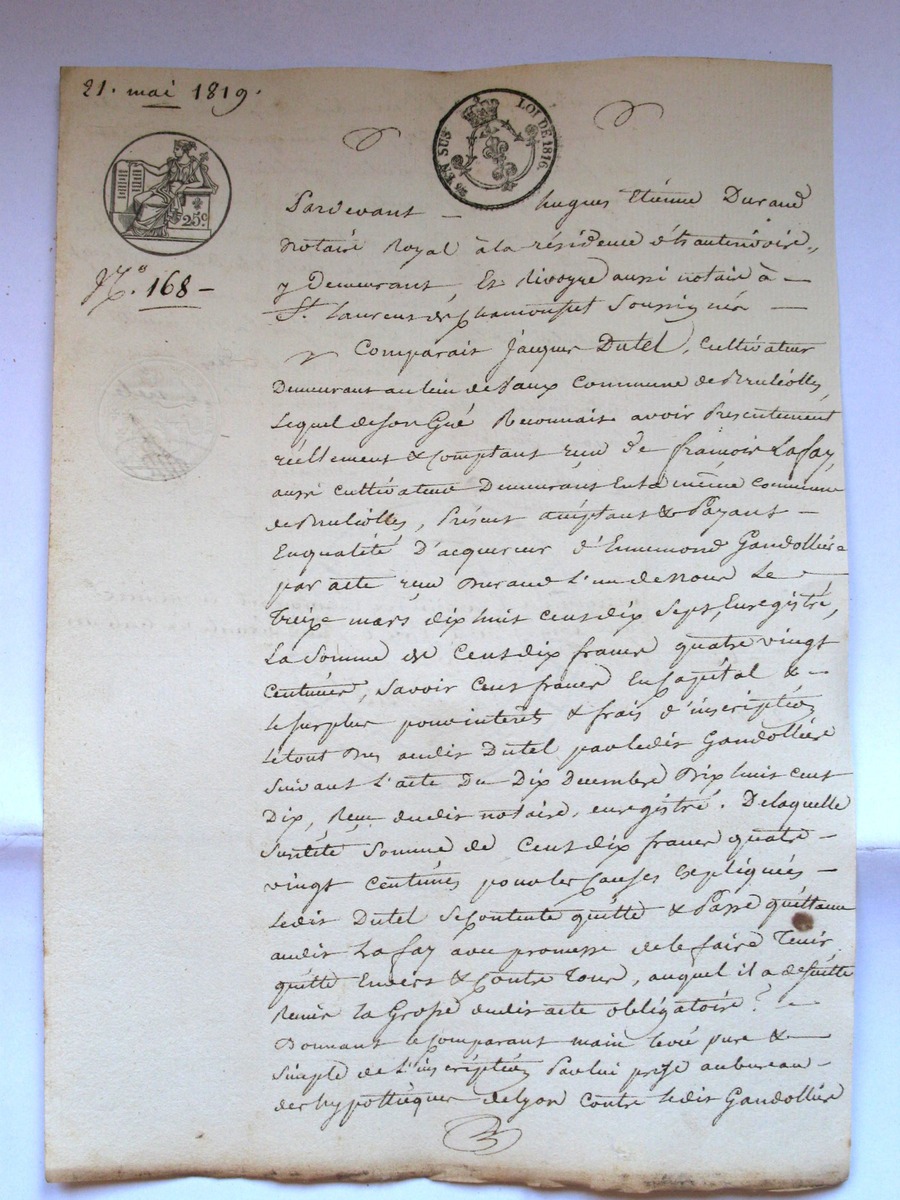 21. mai 1819.
EN SUS LOI DE 1816
25c
N.o 168 –
Pardevant – hugues Etienne Durand
Notaire Royal à la résidence d'hauterivoire,
y Demeurant, Et livoyre aussi notaire à –
St. Laurent de Chamousset Soussignés –
Comparait Jacques Dutel, Cultivateur
Demeurant au lieu de Vaux Commune de Bruliolles,
Lequel de son Gré Reconnait avoir Presentement
réellement & Comptant reçu de françois Lafay,
aussi cultivateur Demeurant En la même Commune
de Brulliolles, Présent acceptant & Payant –
En qualité D'acquereur d'Ennemond Gandollière
par acte reçu Durand L'un de Nous Le –
Treize mars dix huit cent dix Sept, Enregistré,
La Somme de Cent dix francs quatre vingt
Centimes, Savoir Cent francs En Capital & –
le surplus pour interêts & frais d'inscription
le tout Du audit Dutel par ledit Gandollière
Suivant L'acte Du Dix Decembre Dix huit cent
Dix, Reçu dudit notaire, enregistré. De laquelle
Somme de Cent dix francs quatre –
vingt Centimes pour les Causes Expliquées –
Ledit Dutel Se Contente quitte & Passe quittance
audit Lafay avec promesse de le faire Tenir
quitte Envers & Contre Tous, auquel il a de suitte
Remis la Grosse dudit acte obligatoire. –
Donnant le Comparant main levée pure &
Simple de L'inscription Par lui prise au bureau –
des hypothèques de Lyon Contre ledit Gandollière